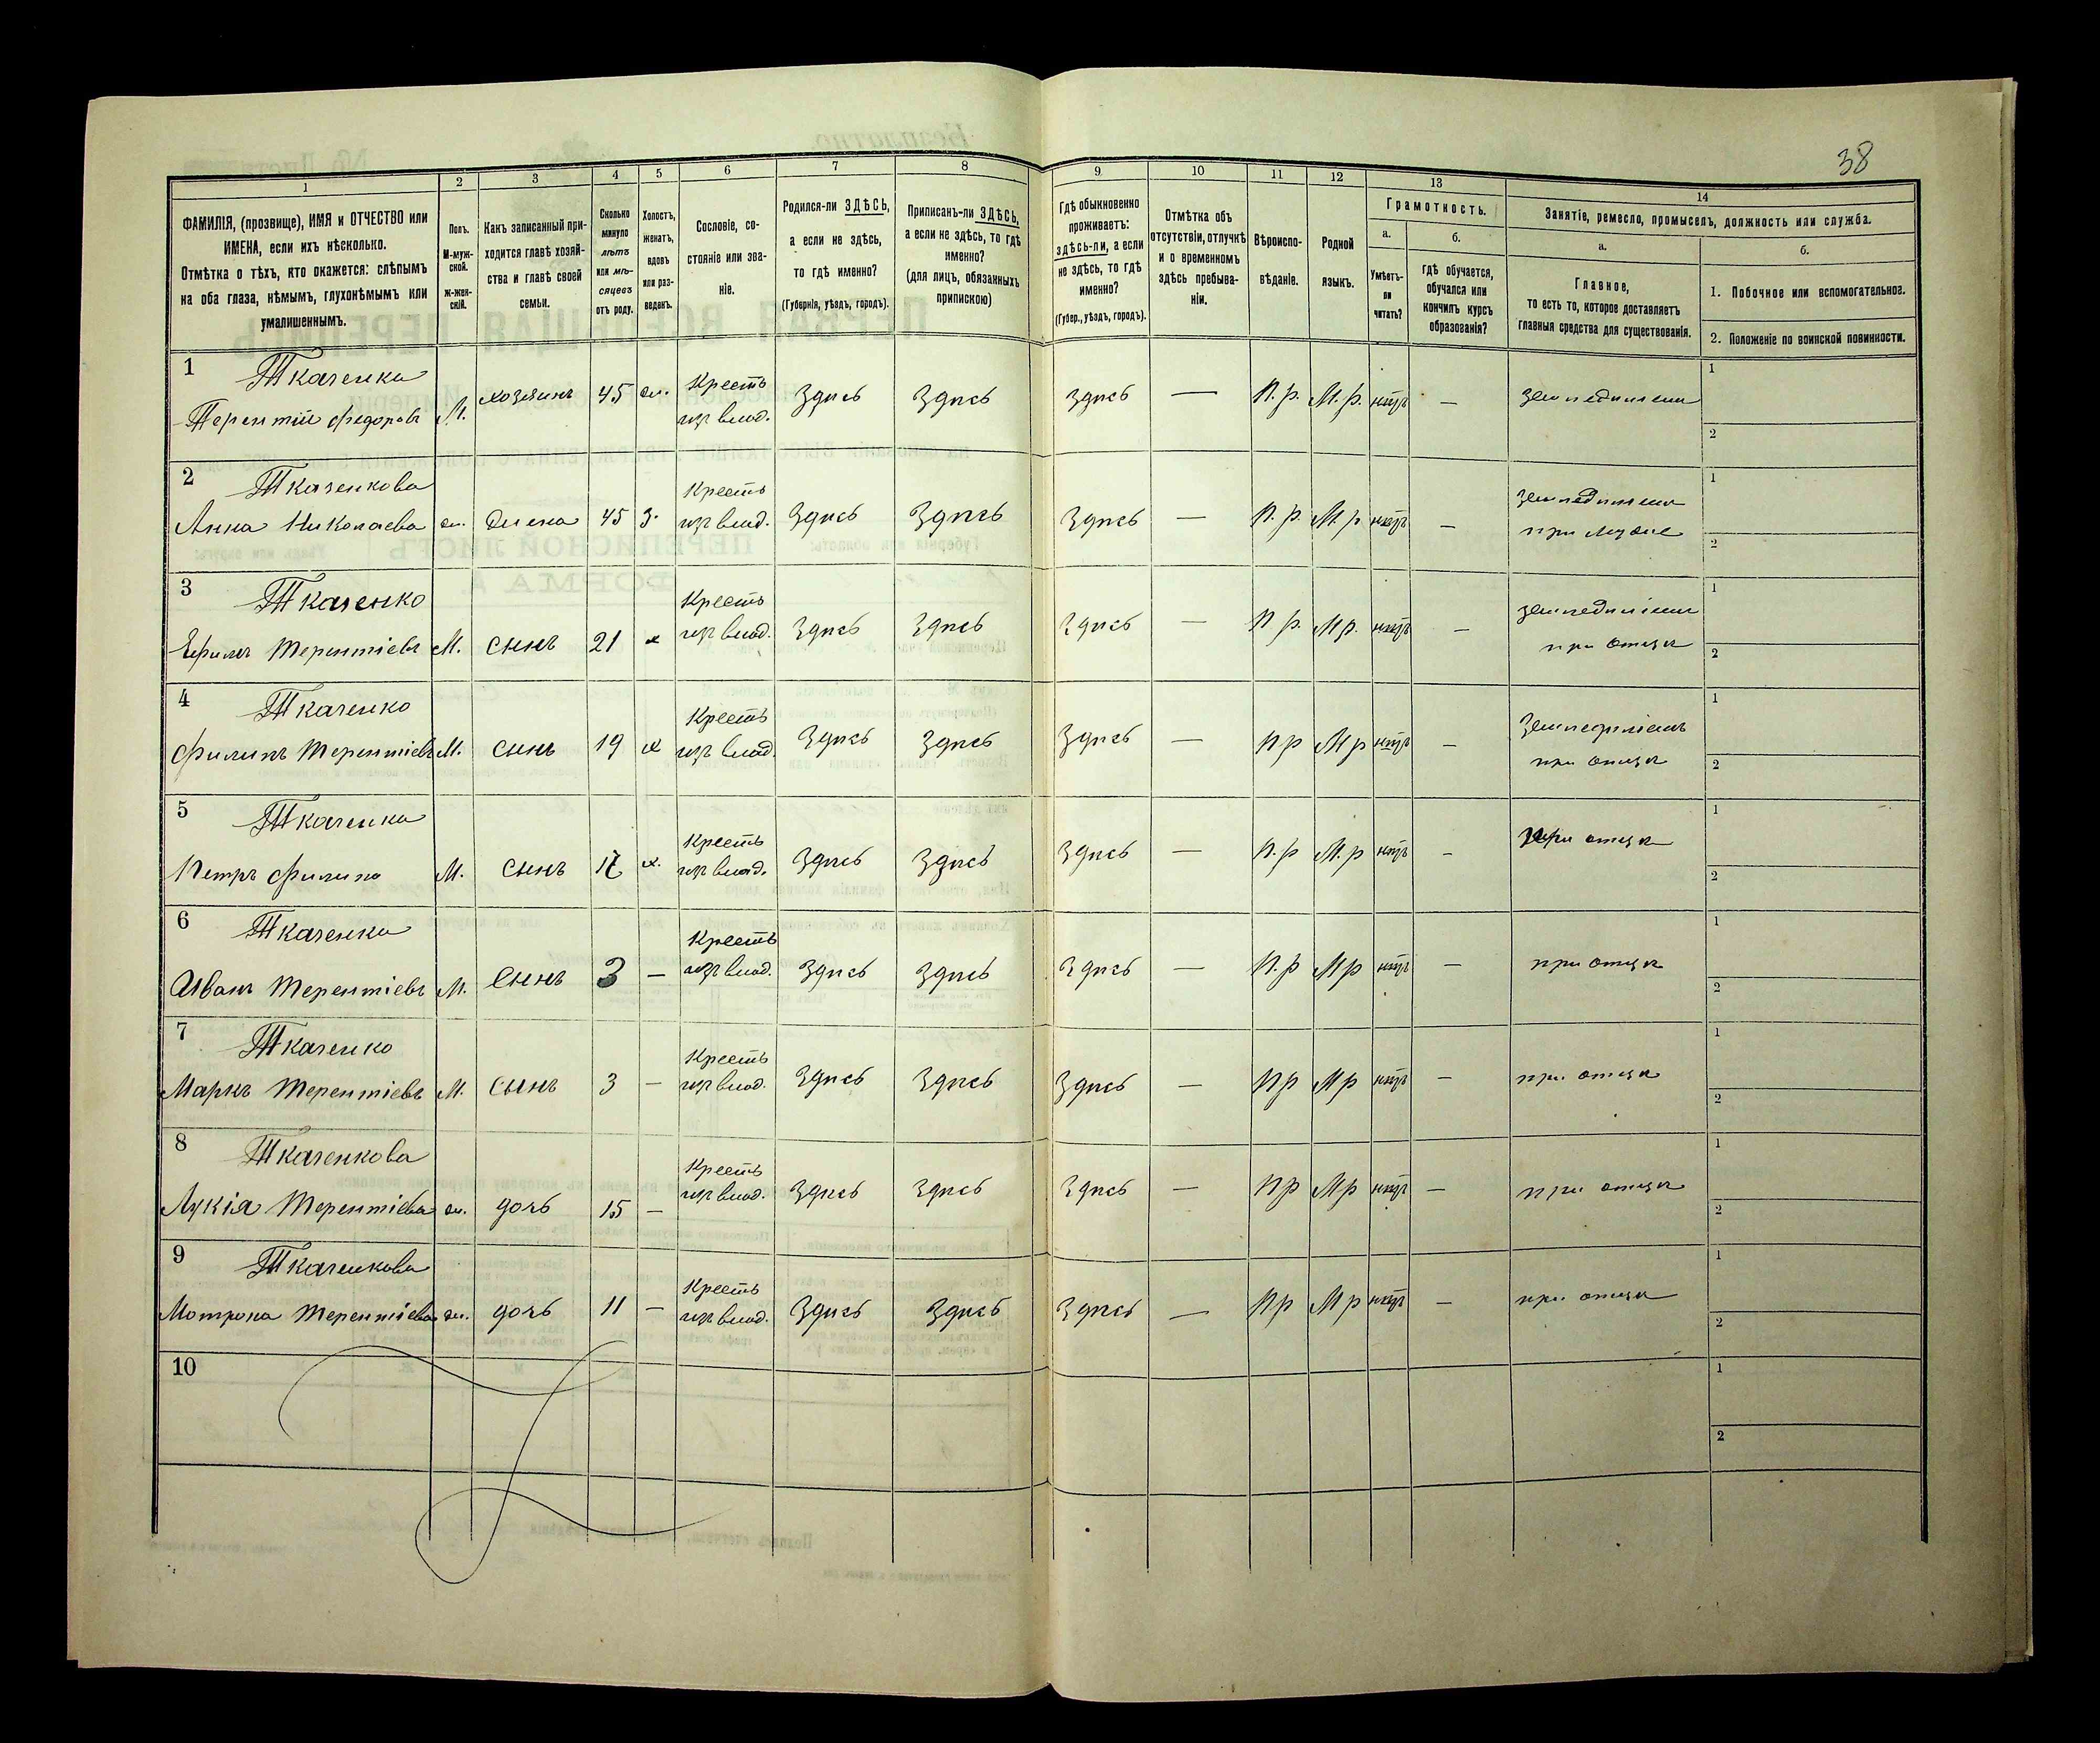 38
1 2 3 4 5 6 7 8 9 10 11 12 13 14
ФАМИЛІЯ, (прозвище), ИМЯ и ОТЧЕСТВО или
ИМЕНА, если ихъ нѣсколько.
Отмѣтка о тѣхъ, кто окажется: слѣпымъ
на оба глаза, нѣмымъ, глухонѣмымъ или
умалишеннымъ.
Полъ.
М-муж-
ской.
Ж-жен-
скій.
Какъ записанный при-
ходится главѣ хозяй-
ства и главѣ своей
семьи.
Сколько
минуло
лѣтъ
или мѣ-
сяцевъ
отъ роду.
Холостъ,
женатъ,
вдовъ
или раз-
веденъ.
Сословіе, со-
стояніе или зва-
ніе.
Родился-ли ЗДѢСЬ,
а если не здѣсь,
то гдѣ именно?
(Губернія, уѣздъ, городъ).
Приписанъ-ли ЗДѢСЬ,
а если не здѣсь, то гдѣ
именно?
(для лицъ, обязанныхъ
припискою)
Гдѣ обыкновенно
проживаетъ:
здѣсь-ли, а если
не здѣсь, то гдѣ
именно?
(Губер., уѣздъ, городъ).
Отмѣтка объ
отсутствіи, отлучкѣ
и о временномъ
здѣсь пребыва-
ніи.
Вѣроиспо-
вѣданіе.
Родной
языкъ.
Грамотность.
а.
Умѣетъ-
ли
читать?
б.
гдѣ обучается,
обучался или
кончилъ курсъ
образованія?
Занятіе, ремесло, промыселъ, должность или служба.
а.
Главное,
то есть то, которое доставляетъ
главныя средства для существованія.
б.
1. Побочное или вспомогательное.
2. Положеніе по воинской повинности.
1 Ткаченко Кресть 1
Терентій Федоровъ М. хозяинъ 45 ж. изъ влад. Здѣсь Здѣсь здѣсь — П. р. М. р. нѣтъ — земледѣліемъ
2
2 Ткаченкова Кресть земледѣліемъ 1
Анна Николаева ж. жена 45 з. изъ влад. Здѣсь Здѣсь Здѣсь — П. р. М. р нѣтъ — при мужѣ
2
3 Ткаченко Кресть земледѣліемъ 1
Ефимъ Терентіевъ М. сынъ 21 х изъ влад. Здѣсь Здѣсь Здѣсь — П р. М р. нѣтъ — при отцѣ
2
4 Ткаченко Кресть Земледѣліемъ 1
Филипъ Терентіевъ М. сынъ 19 х изъ влад. Здѣсь Здѣсь Здѣсь — П р М р нѣтъ — при отцѣ
2
5 Ткаченко Кресть 1
Петръ М. сынъ х. изъ влад. Здѣсь Здѣсь Здѣсь — П. р М. р нѣтъ — При отцѣ
2
6 Ткаченко Кресть 1
Иванъ Терентіевъ М. Сынъ 3 — изъ влад. Здѣсь Здѣсь Здѣсь — П. р М р нѣтъ — при отцѣ
2
7 Ткаченко Кресть 1
Маркъ Терентіевъ М. сынъ 3 — изъ влад. Здѣсь Здѣсь Здѣсь — П р М р нѣтъ — при отцѣ
2
8 Ткаченкова Кресть 1
Лукія Терентіева ж. дочь 15 — изъ влад. Здѣсь Здѣсь Здѣсь — П р М р нѣтъ — при отцѣ
2
9 Ткаченкова Кресть 1
Мотрона Терентіева ж. дочь 11 — изъ влад. Здѣсь Здѣсь Здѣсь — П р М р нѣтъ — при отцѣ
2
10 1
2